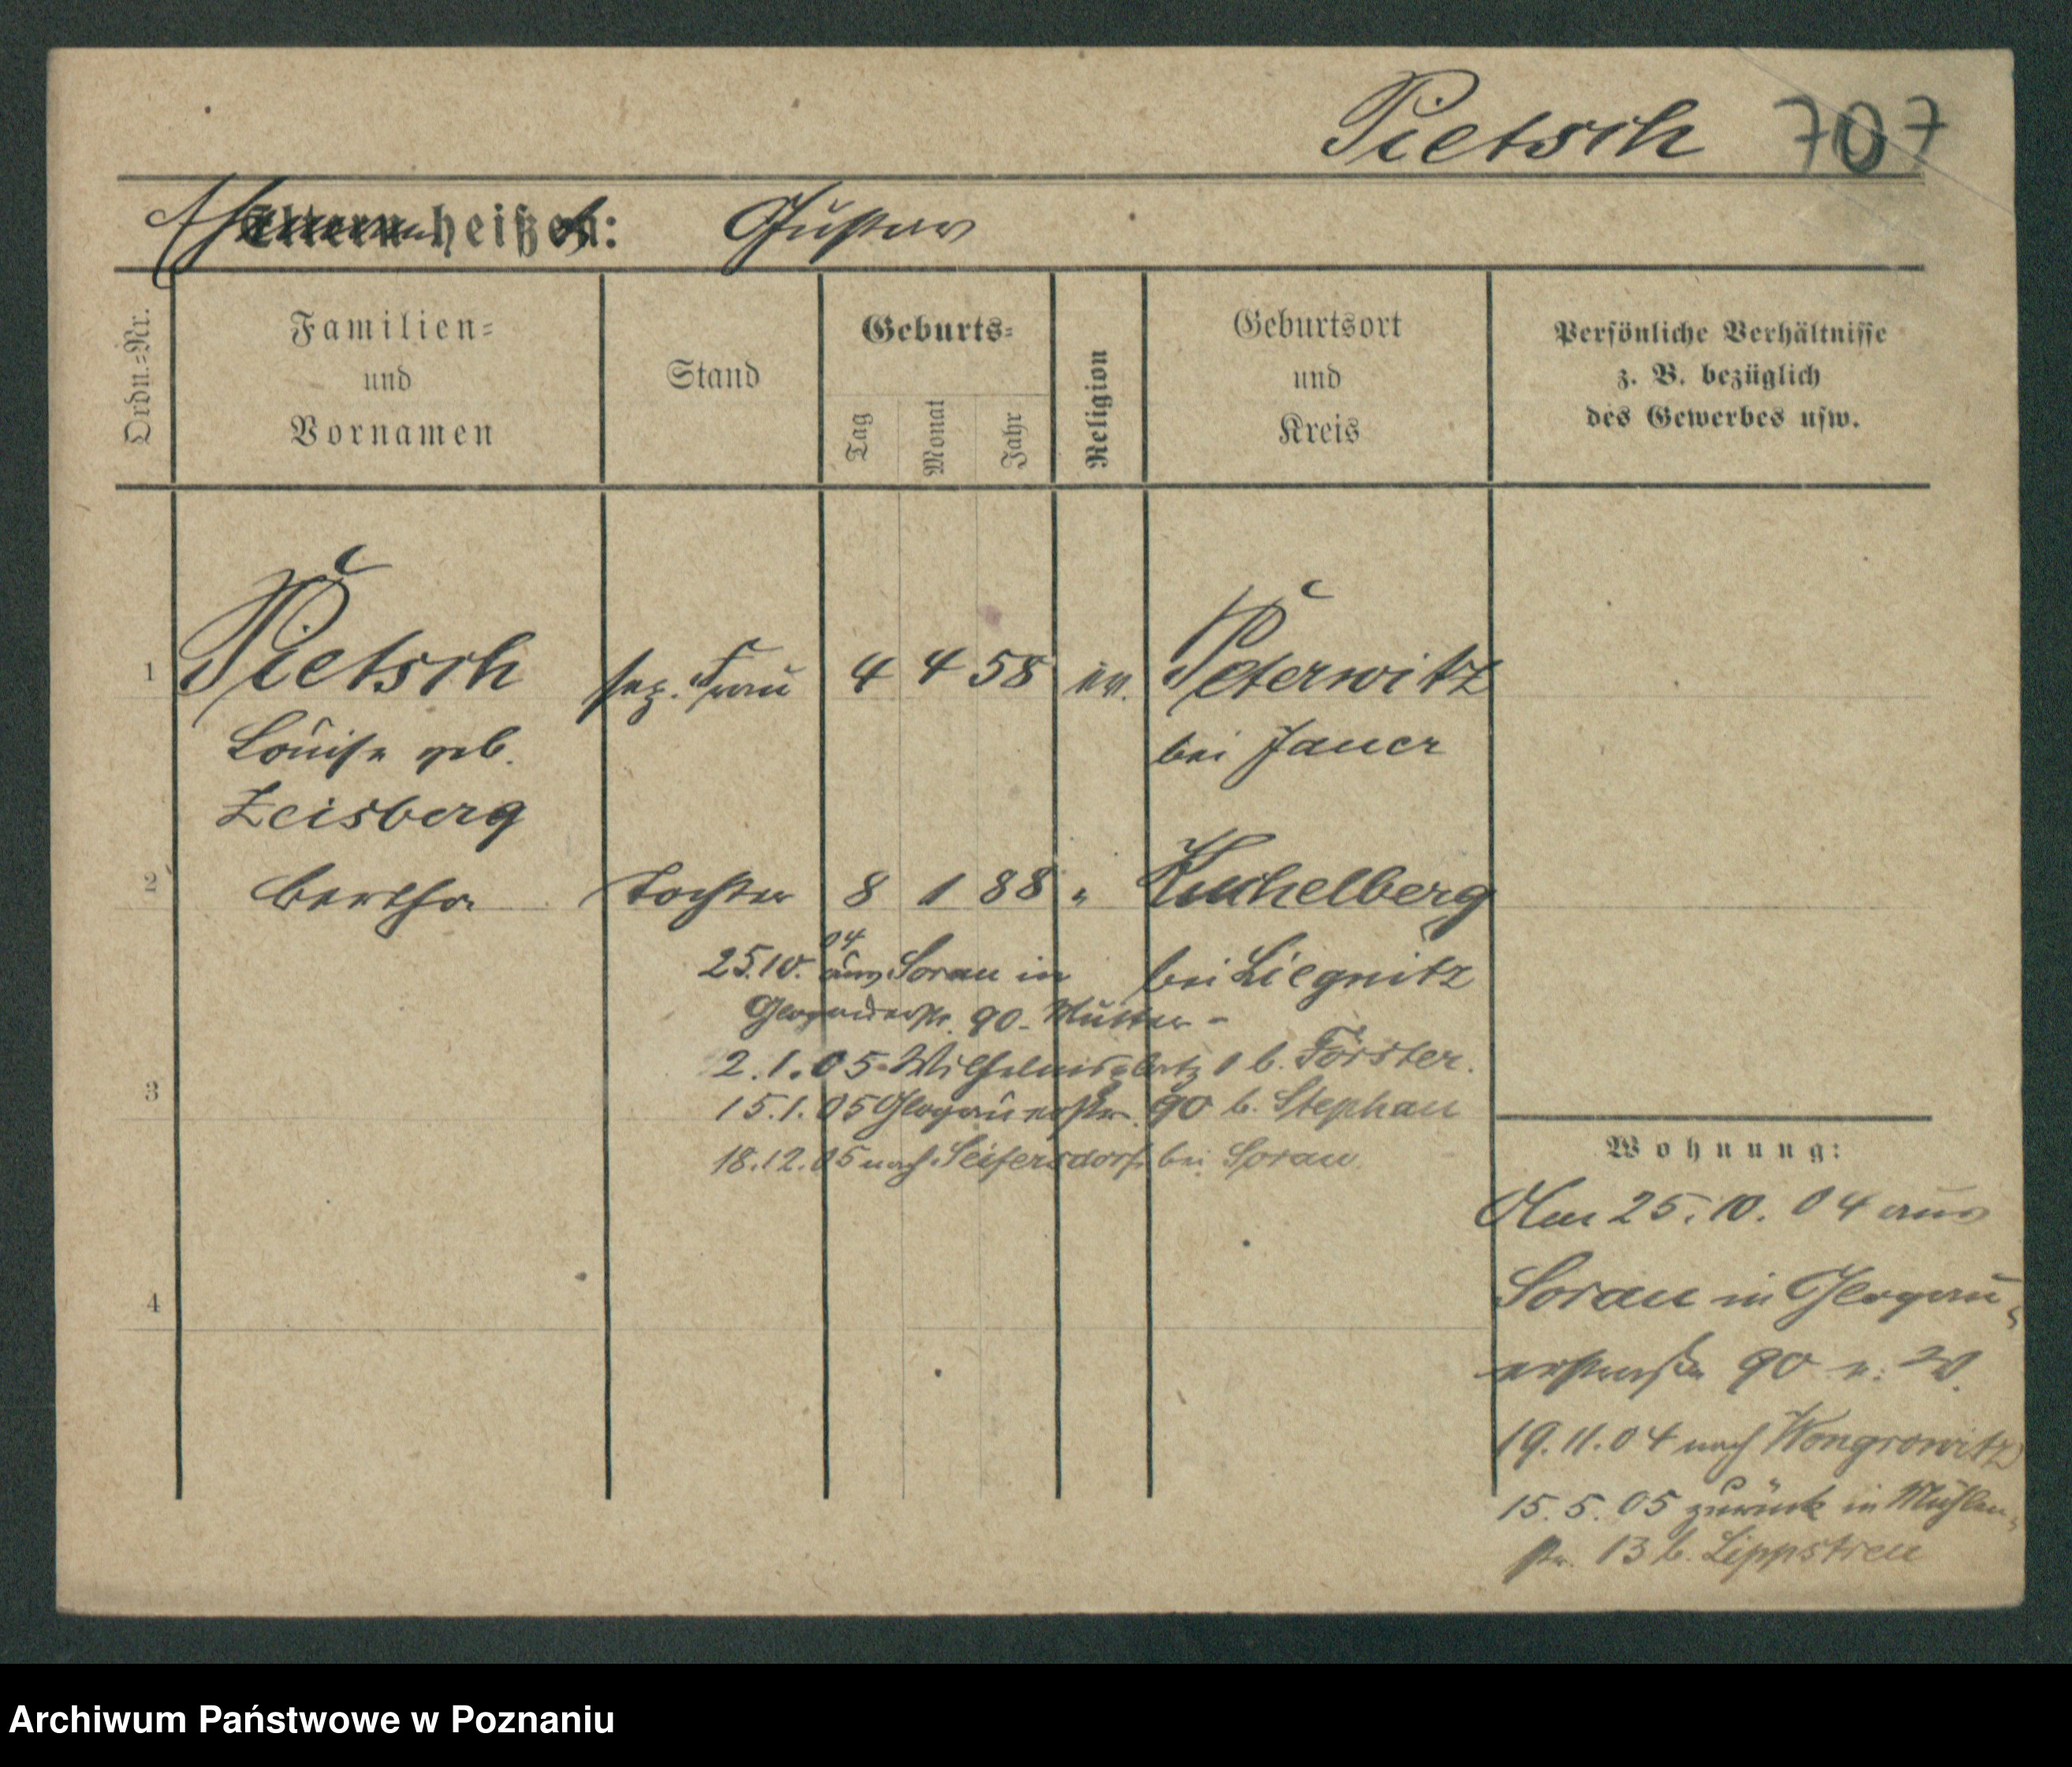 Pietsch 707
Ehemann heißt: Gustav
Ordn.-Nr.
Familien-
und
Vornamen
Stand
Geburts-
Tag
Monat
Jahr
Religion
Geburtsort
und
Kreis
Persönliche Verhältnisse
z. B. bezüglich
des Gewerbes usw.
1 Pietsch sep. Frau 4 4 58 ev. Peterwitz
Louise geb. bei Jauer
Zeisberg
2 Bertha Tochter 8 1 88 " Kuchelberg
bei Liegnitz
25.10. 04 aus Sorau in
Glogauerstr. 90. Mutter -
2.1.05 Wilhelmsplatz 1 b. Förster.
3
15.1.05 Glogauerstr. 90 b. Stephan
18.12.05 nach Seifersdorf bei Sorau
4
Wohnung:
Am 25.10.04 aus
Sorau in Glogau-
erstraße 90 e. W.
19.11.04 nach Wongrowitz
15.5.05 zurück in Mühlen-
str. 13 b. Lippstreu
Archiwum Państwowe w Poznaniu